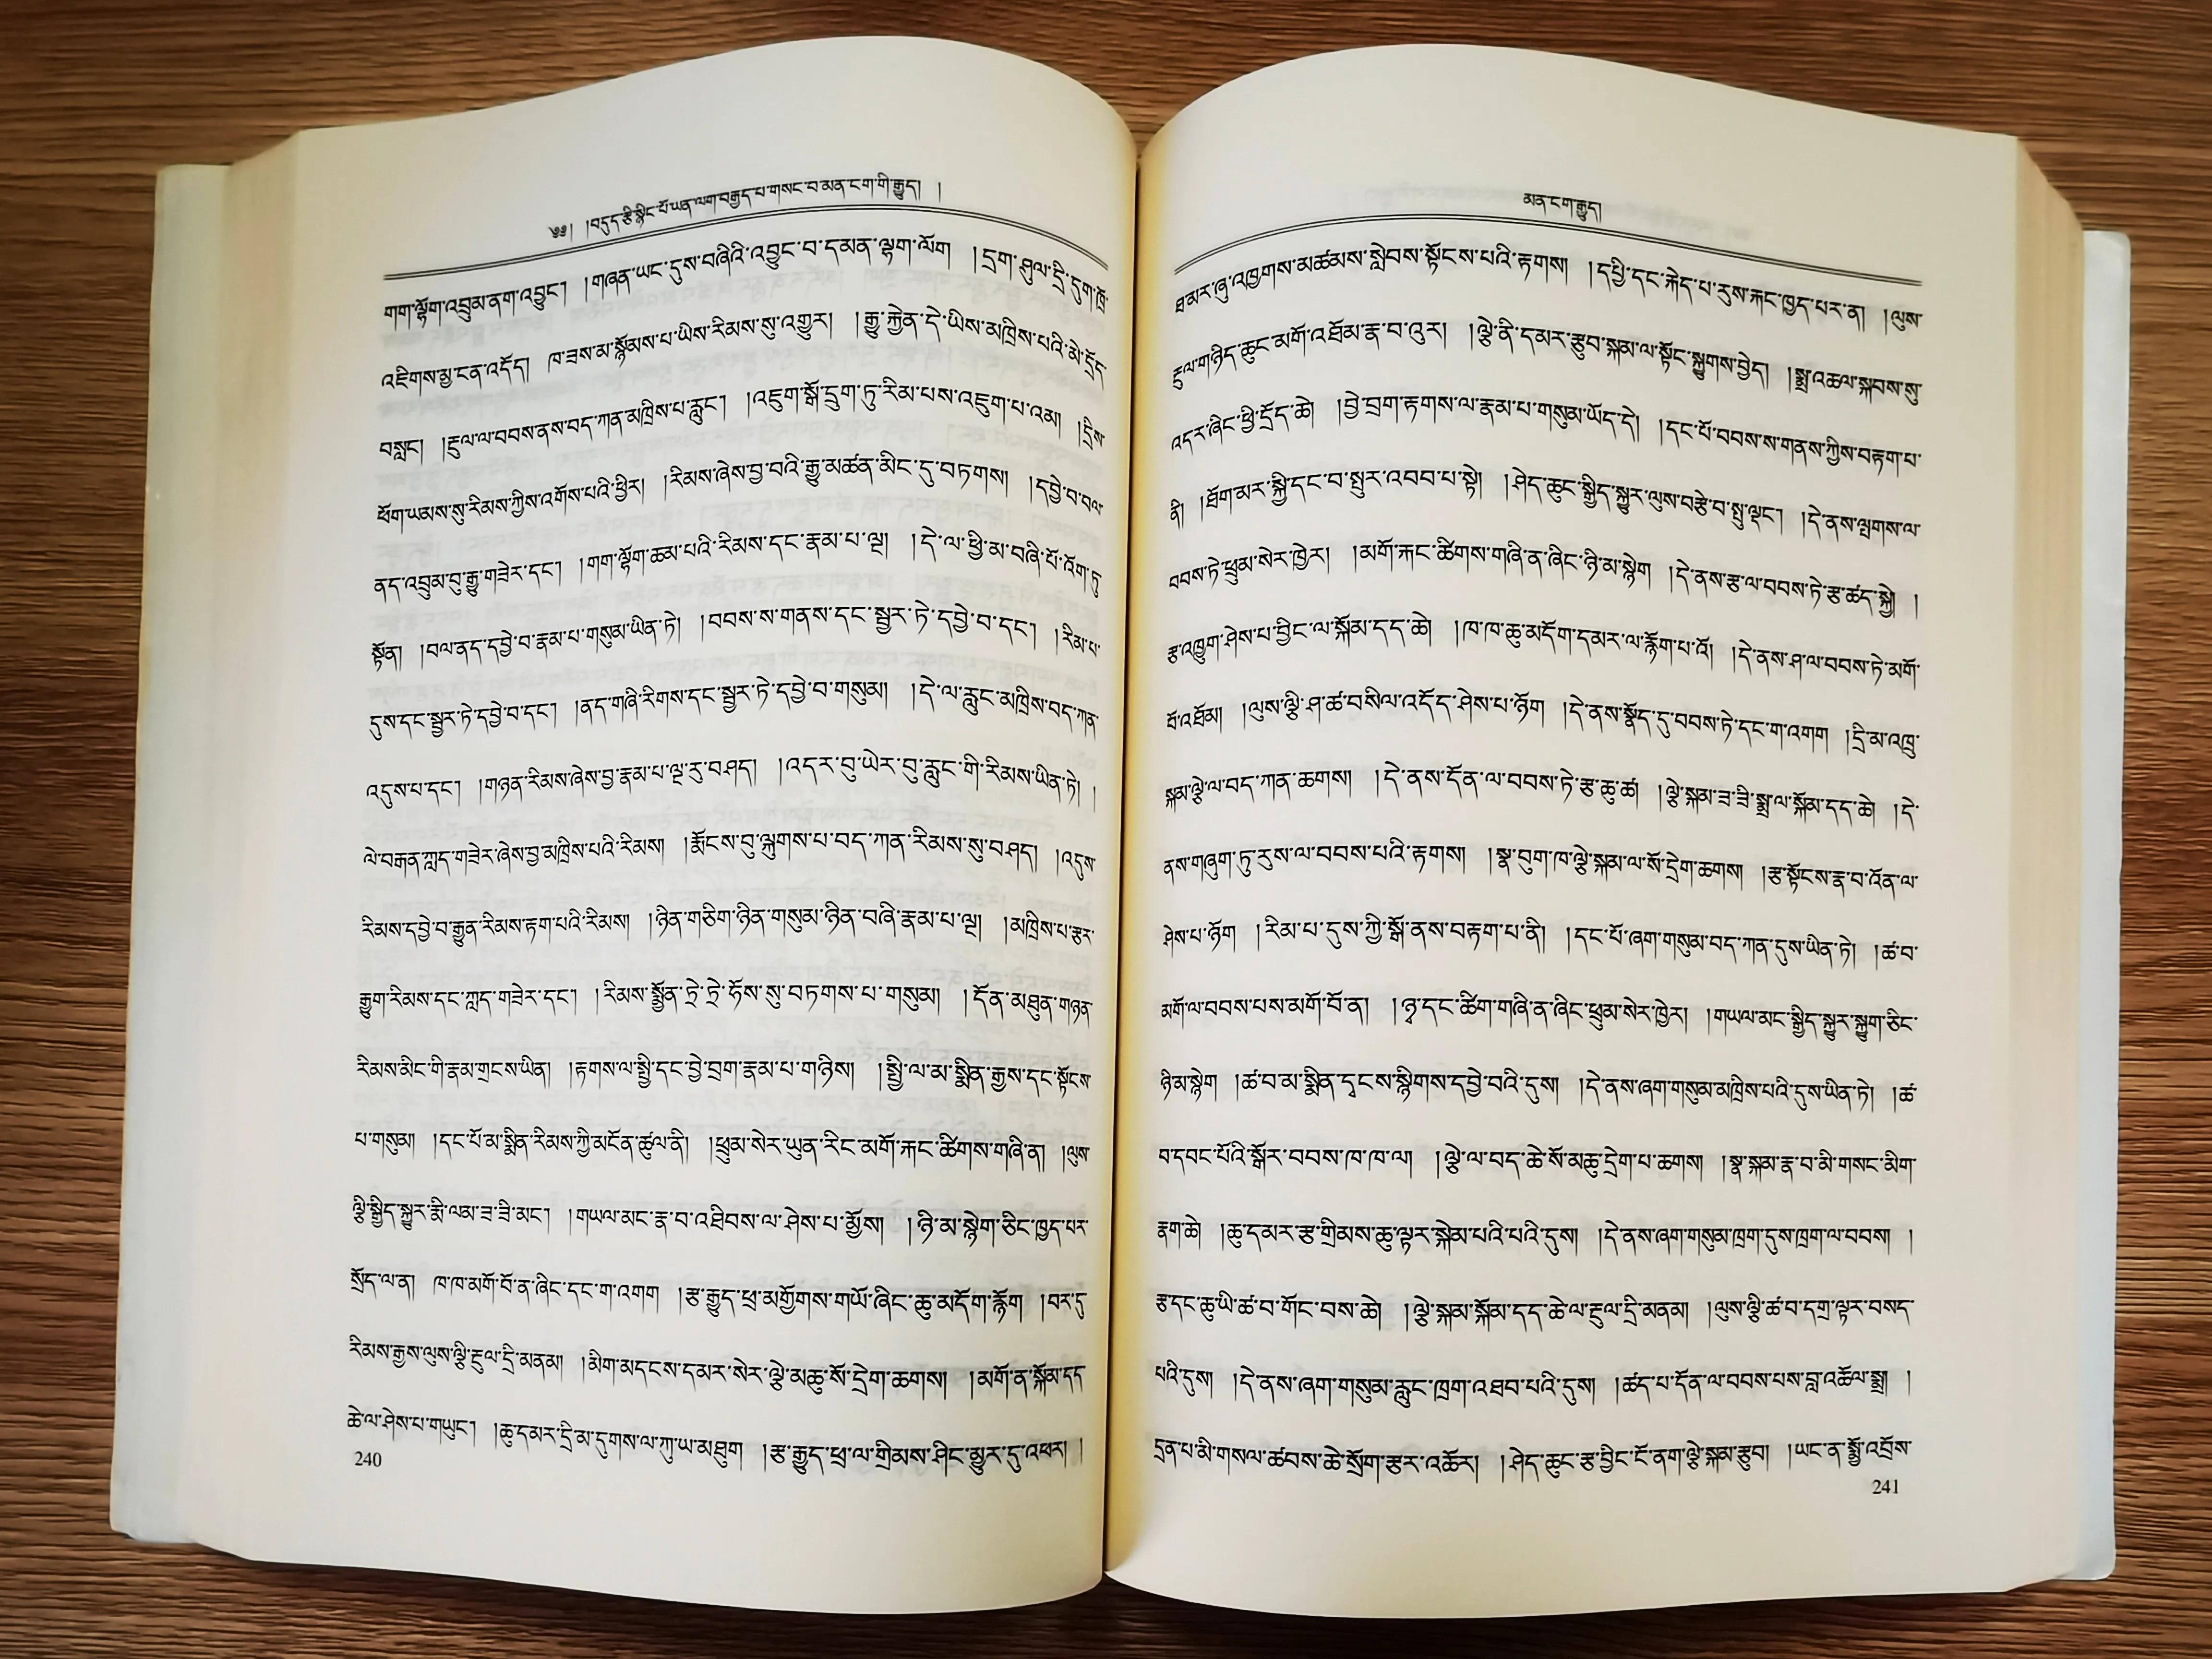 ༄༅། །བདུད་རྩི་སྙིང་པོ་ཡན་ལག་བརྒྱད་པ་གསང་བ་མན་ངག་གི་རྒྱུད། །
གག་ལྷོག་འབྲུམ་ནག་འབྱུང༌། །གཞན་ཡང་དུས་བཞིའི་འབྱུང་བ་དམན་ལྷག་ལོག །དྲག་ཤུལ་དྲི་དུག་ཁྲོ་
འཇིགས་མྱ་ངན་འདོད། ཁ་ཟས་མ་སྙོམས་པ་ཡིས་རིམས་སུ་འགྱུར། །རྒྱུ་རྐྱེན་དེ་ཡིས་མཁྲིས་པའི་མེ་དྲོད་
བསླང། །རྔུལ་ལ་བབས་ནས་བད་ཀན་མཁྲིས་པ་རླུང༌། །འཇུག་སྒོ་དྲུག་ཏུ་རིམ་པས་འཇུག་པ་འམ། །དྲིས་
ཕོག་ཡམས་སུ་རིམས་ཀྱིས་འགོས་པའི་ཕྱིར། །རིམས་ཞེས་བྱ་བའི་རྒྱུ་མཚན་མིང་དུ་བཏགས། །དབྱེ་བ་བལ་
ནད་འབྲུམ་བུ་རྒྱུ་གཟེར་དང༌། །གག་ལྷོག་ཆམ་པའི་རིམས་དང་རྣམ་པ་ལྔ། །དེ་ལ་ཕྱི་མ་བཞི་པོ་འོག་ཏུ་
སྟོན། །བལ་ནད་དབྱེ་བ་རྣམ་པ་གསུམ་ཡིན་ཏེ། །བབས་ས་གནས་དང་སྦྱར་ཏེ་དབྱེ་བ་དང༌། །རིམ་པ་
དུས་དང་སྦྱར་ཏེ་དབྱེ་བ་དང༌། །ནད་གཞི་རིགས་དང་སྦྱར་ཏེ་དབྱེ་བ་གསུམ། །དེ་ལ་རླུང་མཁྲིས་བད་ཀན་
འདུས་པ་དང༌། །གཉན་རིམས་ཞེས་བྱ་རྣམ་པ་ལྔ་རུ་བཤད། །འདར་བུ་ཡེར་བུ་རླུང་གི་རིམས་ཡིན་ཏེ། །
ལེ་བརྒན་ཀླད་གཟེར་ཞེས་བྱ་མཁྲིས་པའི་རིམས། །རྨོངས་བུ་ལྐུགས་པ་བད་ཀན་རིམས་སུ་བཤད། །འདུས་
རིམས་དབྱེ་བ་རྒྱུན་རིམས་རྟག་པའི་རིམས། །ཉིན་གཅིག་ཉིན་གསུམ་ཉིན་བཞི་རྣམ་པ་ལྔ། །མཁྲིས་པ་རྩར་
རྒྱུག་རིམས་དང་ཀླད་གཟེར་དང༌། །རིམས་སྨྱོན་ཏྲེ་ཏྲེ་ཧོས་སུ་བཏགས་པ་གསུམ། །དོན་མཐུན་གཉན་
རིམས་མིང་གི་རྣམ་གྲངས་ཡིན། །རྟགས་ལ་སྤྱི་དང་བྱེ་བྲག་རྣམ་པ་གཉིས། །སྤྱི་ལ་མ་སྨིན་རྒྱས་དང་སྟོངས་
པ་གསུམ། །དང་པོ་མ་སྨིན་རིམས་ཀྱི་མངོན་ཚུལ་ནི། །ཕྲུམ་སེར་ཡུན་རིང་མགོ་རྐང་ཚིགས་གཞི་ན། །ལུས་
ལྕི་སྒྱིད་སྐྱུར་རྨི་ལམ་ཟ་ཟི་མང༌། །གཡལ་མང་རྣ་བ་འཐིབས་ལ་ཤེས་པ་མྱོས། །ཉི་མ་སྙེག་ཅིང་ཁྱད་པར་
སྲོད་ལ་ན། ཁ་ཁ་མགོ་བོ་ན་ཞིང་དང་ག་འགག །རྩ་རྒྱུད་ཕྲ་མགྱོགས་གཡོ་ཞིང་ཆུ་མདོག་རྙོག །བར་དུ་
རིམས་རྒྱས་ལུས་ལྕི་རྔུལ་དྲི་མནམ། །མིག་མདངས་དམར་སེར་ལྕེ་མཆུ་སོ་དྲེག་ཆགས། །མགོ་ན་སྐོམ་དད་
ཆེ་ལ་ཤེས་པ་གཡུང༌། །ཆུ་དམར་དྲི་མ་དུགས་ལ་ཀུ་ཡ་མཐུག །རྩ་རྒྱུད་ཕྲ་ལ་གྲིམས་ཤིང་མྱུར་དུ་འཕར། །
240
མན་ངག་རྒྱུད།
ཐ་མར་ཞུ་འཁྱགས་མཚམས་སླེབས་སྟོངས་པའི་རྟགས། །དཔྱི་དང་རྐེད་པ་རུས་རྐང་ཁྱད་པར་ན། །ལུས་
རྔུལ་གཉིད་ཆུང་མགོ་འཐོམ་རྣ་བ་འུར། །ལྕེ་ནི་དམར་རྩུབ་སྐམ་ལ་སྟོང་སྐྱུགས་བྱེད། །སྨྲ་འཆལ་སྐབས་སུ་
འདར་ཞིང་ཕྱི་དྲོད་ཆེ། །བྱེ་བྲག་རྟགས་ལ་རྣམ་པ་གསུམ་ཡོད་དེ། །དང་པོ་བབས་ས་གནས་ཀྱིས་བརྟག་པ་
ནི། །ཐོག་མར་སྐྱི་དང་བ་སྤུར་འབབ་པ་སྟེ། །ཤེད་ཆུང་སྒྱིད་སྐྱུར་ལུས་བརྩེ་བ་སྤུ་ལྡང༌། །དེ་ནས་ལྤགས་ལ་
བབས་ཏེ་ཕྲུམ་སེར་ཁྱེར། །མགོ་རྐང་ཚིགས་གཞི་ན་ཞིང་ཉི་མ་སྙེག །དེ་ནས་རྩ་ལ་བབས་ཏེ་རྩ་ཚད་སྐྱེ། །
རྩ་འཁྱུག་ཤེས་པ་བྱིང་ལ་སྐོམ་དད་ཆེ། །ཁ་ཁ་ཆུ་མདོག་དམར་ལ་རྙོག་པ་འོ། །དེ་ནས་ཤ་ལ་བབས་ཏེ་མགོ་
བོ་འཐོམ། །ལུས་ལྕི་ཤ་ཚ་བསིལ་འདོད་ཤེས་པ་ཉོག །དེ་ནས་སྣོད་དུ་བབས་ཏེ་དང་ག་འགག །དྲི་མ་འཁྲུ་
སྐམ་ལྕེ་ལ་བད་ཀན་ཆགས། །དེ་ནས་དོན་ལ་བབས་ཏེ་རྩ་ཆུ་ཚ། །ལྕེ་སྐམ་ཟ་ཟི་སྨྲ་ལ་སྐོམ་དད་ཆེ། །དེ་
ནས་གཞུག་ཏུ་རུས་ལ་བབས་པའི་རྟགས། །སྣ་བུག་ཁ་ལྕེ་སྐམ་ལ་སོ་དྲེག་ཆགས། །རྩ་སྟོངས་རྣ་བ་འོན་ལ་
ཤེས་པ་ཉོག །རིམ་པ་དུས་ཀྱི་སྒོ་ནས་བརྟག་པ་ནི། །དང་པོ་ཞག་གསུམ་བད་ཀན་དུས་ཡིན་ཏེ། །ཚ་བ་
མགོ་ལ་བབས་པས་མགོ་བོ་ན། །ཉྭ་དང་ཚིག་གཞི་ན་ཞིང་ཕྲུམ་སེར་ཁྱེར། །གཡལ་མང་སྒྱིད་སྐྱུར་སྐྱུག་ཅིང་
ཉི་མ་སྙེག །ཚ་བ་མ་སྨིན་དྭངས་སྙིགས་དབྱེ་བའི་དུས། །དེ་ནས་ཞག་གསུམ་མཁྲིས་པའི་དུས་ཡིན་ཏེ། །ཚ་
བ་དབང་པོའི་སྒོར་བབས་ཁ་ཁ་ལ། །ལྕེ་ལ་བད་ཆེ་སོ་མཆུ་དྲེག་པ་ཆགས། །སྣ་སྐམ་རྣ་བ་མི་གསང་མིག་
རྣག་ཆེ། །ཆུ་དམར་རྩ་གྲིམས་ཆུ་ལྟར་སྐེམ་པའི་པའི་དུས། །དེ་ནས་ཞག་གསུམ་ཁྲག་དུས་ཁྲག་ལ་བབས། །
རྩ་དང་ཆུ་ཡི་ཚ་བ་གོང་བས་ཆེ། །ལྕེ་སྐམ་སྐོམ་དད་ཆེ་ལ་རྔུལ་དྲི་མནམ། །ལུས་ལྕི་ཚ་བ་དགྲ་ལྟར་བསད་
པའི་དུས། །དེ་ནས་ཞག་གསུམ་རླུང་ཁྲག་འཐབ་པའི་དུས། །ཚད་པ་དོན་ལ་བབས་པས་བླ་འཚོལ་སྨྲ། །
དྲན་པ་མི་གསལ་ཚབས་ཆེ་སྲོག་རྩར་འཚོར། །ཤེད་ཆུང་རྩ་བྱིང་ངོ་ནག་ལྕེ་སྐམ་རྩུབ། །ཡང་ན་སྨྱོ་འབྲོས་
241